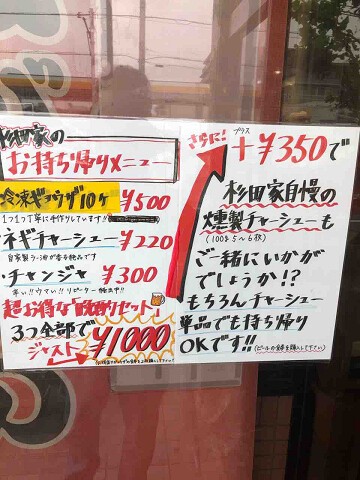 杉田家の
お持ち帰りメニュー
冷凍ギョウザ10ケ ¥500
1つ1つ丁寧に手作りしています!!
ネギチャーシュー ¥220
自家製ラー油が香る絶品です
・チャンジャ ¥300
辛い!!ウマい!!リピーター続出中!!
超お得な「飲み セット」
3つ全部で
ジャスト ¥1000
さらに! プラス
+¥350で
杉田家自慢の
燻製チャーシューも
(100g 5〜6枚)
ご一緒にいかが
でしょうか!?
もちろんチャーシュー
単品でも持ち帰り
OKです!!
(ビールの金券を購入して下さい)